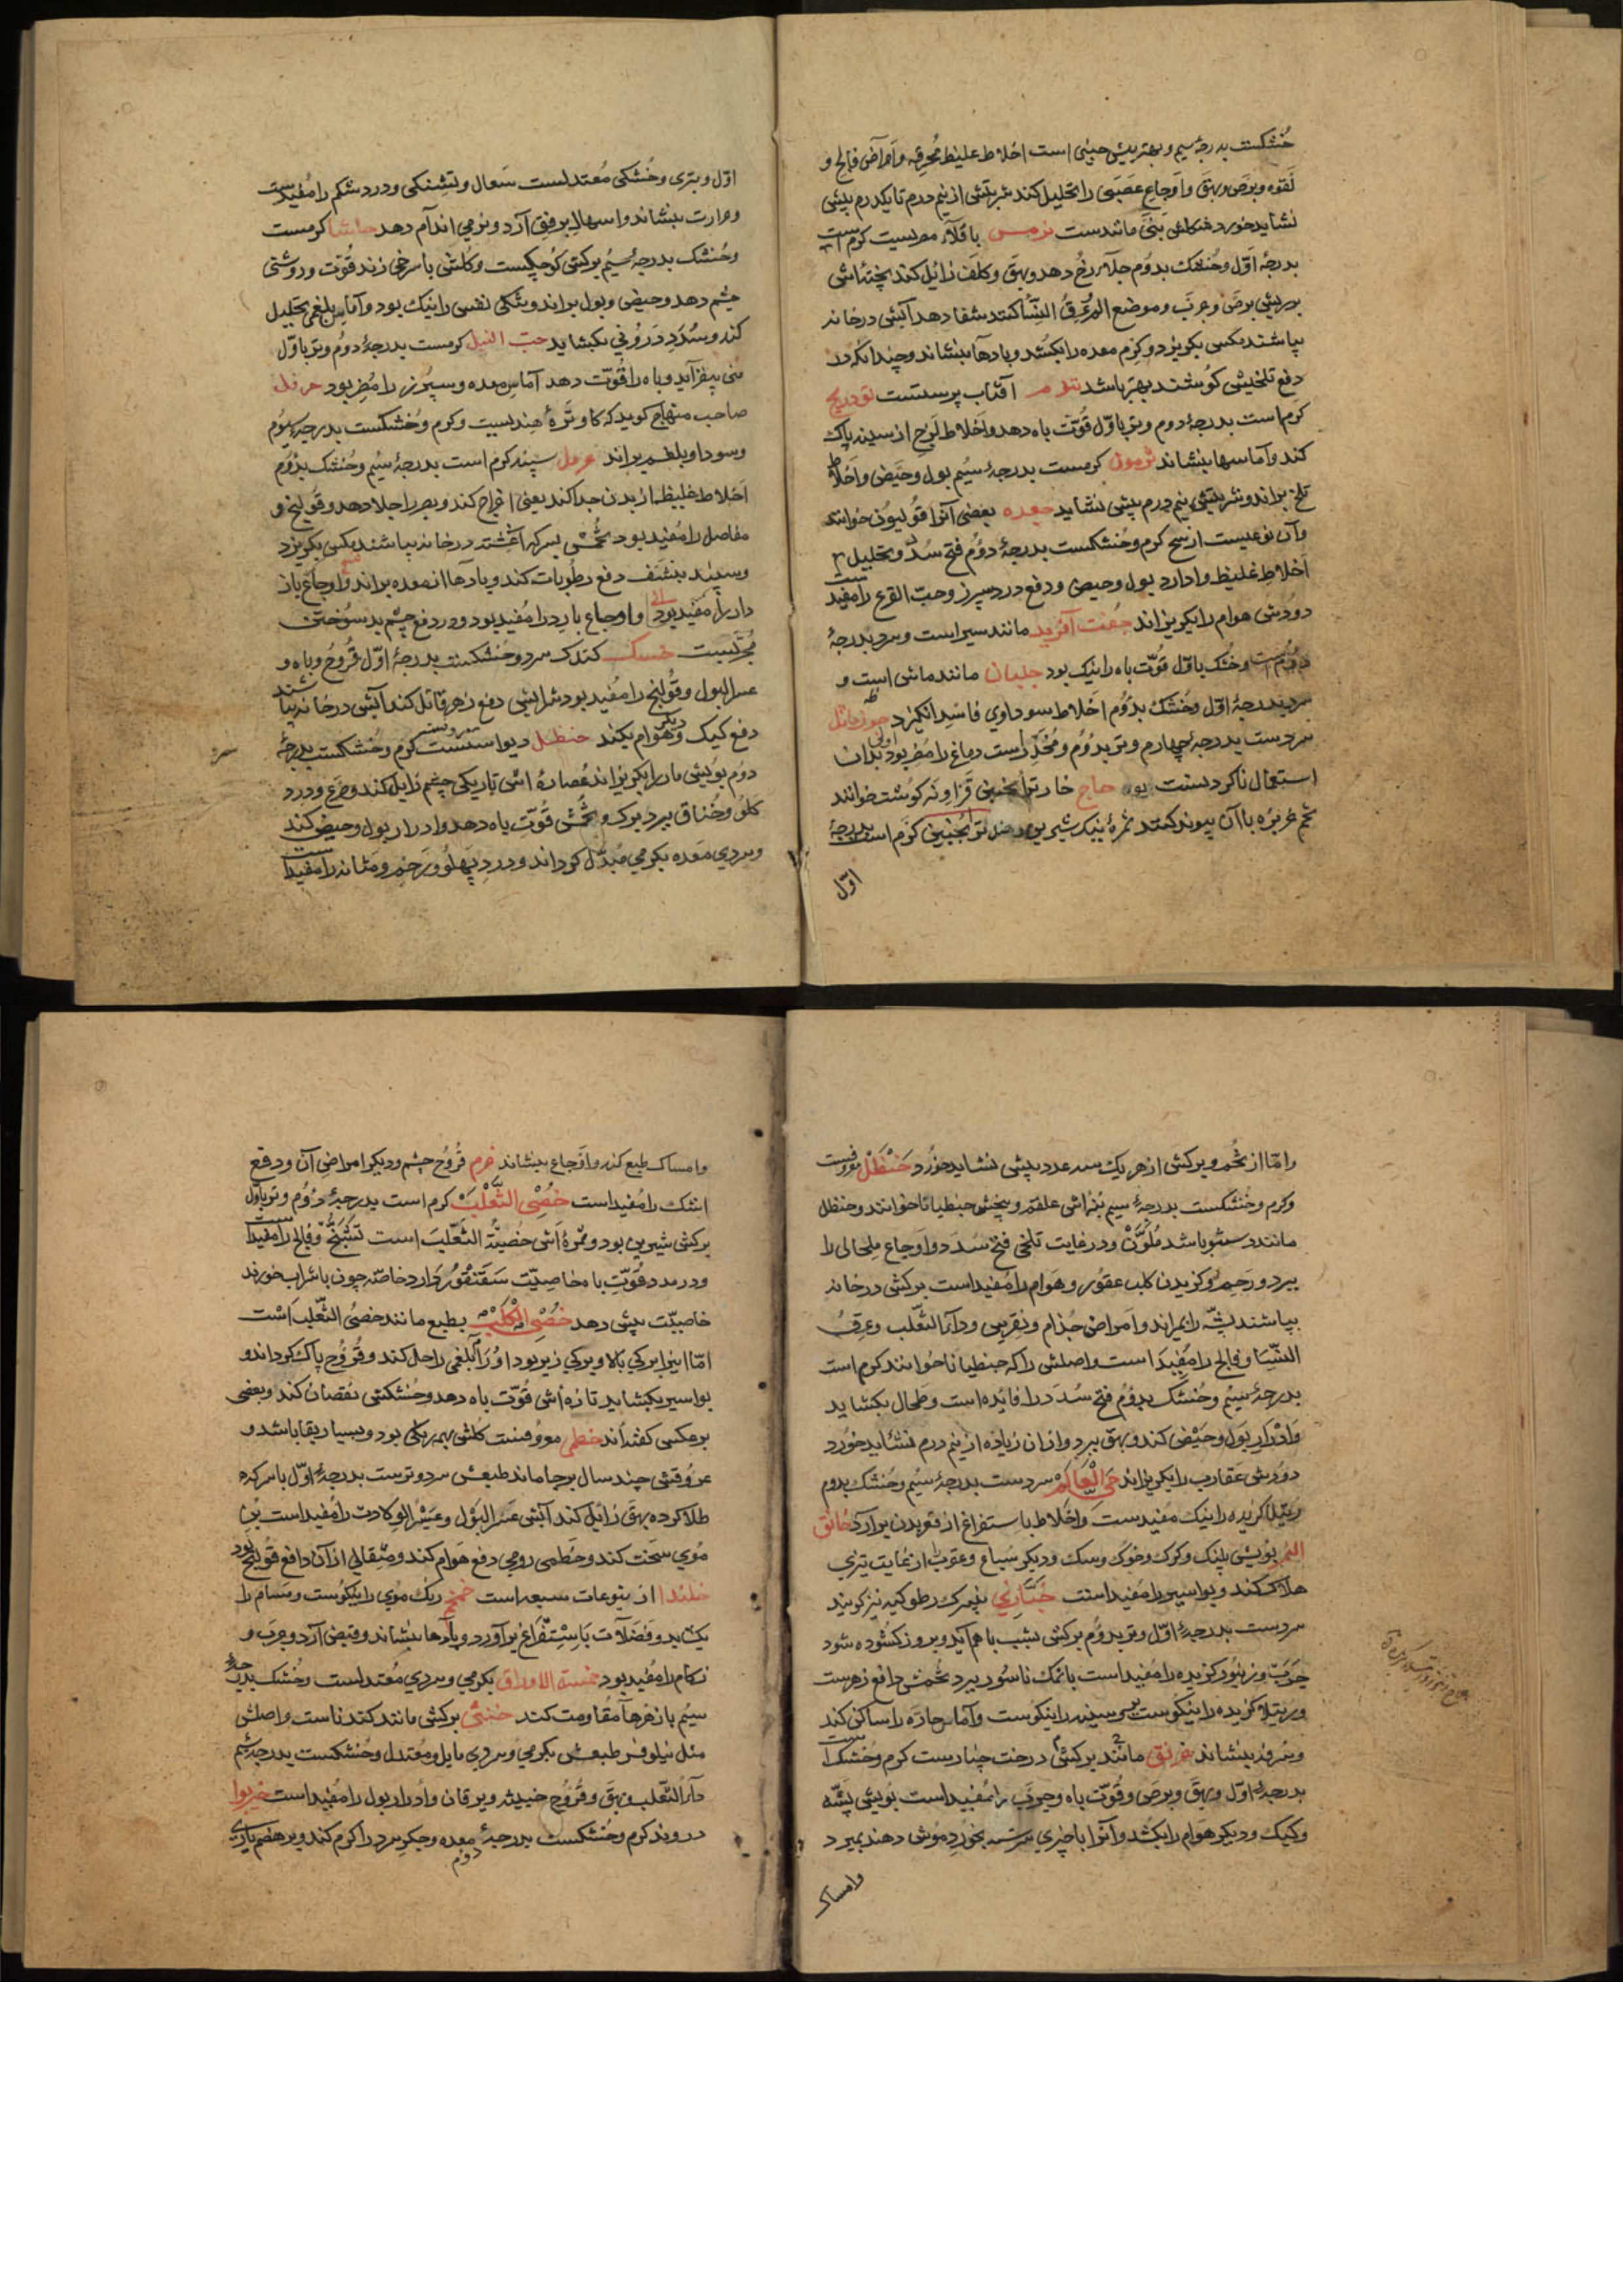 خشکست بدرجهٔ سیم و بهترینش چینی است اخلاط غلیظ محرقه و امراض فالج و
لقوه و برص و بهق و اوجاع عصبی را تحلیل کند شربتش از نیم درم تا یکدرم بیش
نشاید خورد مانندست ترمس باقلاء مصریست کرم است
بدرجهٔ اول و خشک بدوم جلاء رخ دهد و بهق و کلف زایل کند پختهٔ اش
برص و جرب و موضع عرق النسا کنند شفا دهد آبش در خانه
بپاشند مکس بکریزد و کرم معده را بکشد و بادها بنشاند و چندانکه در
دفع تلخیش کوشند بهتر باشد آفتاب پرستست تودریج
کرم است بدرجهٔ دوم و تر باول قوت باه دهد و اخلاط لزج از سینه پاک
کند و آماسها بنشاند کرمست بدرجهٔ سیم بول و حیض و اخلاط
تلخ براند و شربتش نیم درم بیش نشاید جعده بعضی آنرا قولیون خوانند
و آن نوعیست از شیح کرم و خشکست بدرجهٔ دوم فتح سدد و تحلیل
اخلاط غلیظ و ادرار بول و حیض و دفع درد سپرز و حب القرع را مفیدست
دودش هوام را بکریزاند جفت آفرید مانند سیر است و سرد بدرجهٔ
دوم است و خشک باول قوت باه را نیک بود جلبان مانند ماش است و
سرد بدرجهٔ اول و خشک بدوم اخلاط سوداوی فاسد انکیزد جوز ماثل
سردست بدرجهٔ چهارم و تر بدوم و مخدر است دماغ را مضر بود بدان
استعمال ناکردنست اولی بود حاج خار ترانجبین قزاونه کوشت خوانند
تخم خربزه با آن پیوند کنند ثمرهٔ نیک شیرین دهد ترانجبین کرم است بدرجهٔ
اول
اول و بتری و خشکی معتدلست سعال و تشنکی و درد شکم را مفیدست
و حرارت بنشاند و اسهال برفق آرد و نرمی اندام دهد حاشا کرمست
و خشک بدرجهٔ سیم برکش کوچکست و کلش با سرخی زند قوت و روشنی
چشم دهد و حیض و بول براند و تنکی نفس را نیک بود و آماس بلغمی تحلیل
کند و سدد درونی بکشاید حب النیل کرمست بدرجهٔ دوم و تر باول
منی بیفزاید و باه را قوت دهد آماس معده و سپرز را مضر بود
صاحب منهاج کوید که هندیست و کرم و خشکست بدرجهٔ سیوم
و سودا و بلغم براند حرمل سپند کرم است بدرجهٔ سیم و خشک بدوم
اخلاط غلیظ از بدن جدا کند یعنی اخراج کند و بصر را جلا دهد و قولنج و
مفاصل را مفید بود تخمش بسرکه آغشته در خانه بپاشند مکس بکریزد
و سپند دفع رطوبات کند و بادها از معده براند و اوجاع باز
دارد و اوجاع بارد را مفید بود و در دفع چشم بد سوختن
مجربست خسک کندک سرد و خشکست بدرجهٔ اول قروح و باه و
عسر البول و قولنج را مفید بود شرابش دفع زهر قاتل کند آبش در خانه بپاشند
دفع کیک و دیکر هوام بکند حنظل کرم و خشکست بدرجهٔ
دوم بویش مار را بکریزاند عصارهٔ اش تاریکی چشم زایل کند و صرع و درد
کلو و خناق ببرد برک و تخمش قوت باه دهد و ادرار بول و حیض کند
و سردی معده بکرمی مبدل کرداند و درد پهلو و رحم و مثانه را مفیدست
و اما از تخم و برکش از هر یک سه عدد بیش نشاید خورد حنظل معروفست
و کرم و خشکست بدرجهٔ سیم بنه اش علقم و بیخش جنطیانا خوانند و حنظل
مانند دستنبو باشد ملون و در غایت تلخی فتح سدد و اوجاع طحالی را
ببرد و رحم و کزیدن کلب عقور و هوام را مفید است برکش در خانه
بپاشند پشه را بمیراند و امراض جذام و نقرس و داء الثعلب و عرق
النسا و فالج را مفید است و اصلش را که جنطیانا خوانند کرم است
بدرجهٔ سیم و خشک بدوم فتح سدد را فایده است و طحال بکشاید
و ادرار بول و حیض کند و بهق ببرد و از ان زیاده از نیم درم نشاید خورد
دودش عقارب را بکریزاند حی العالم سردست بدرجهٔ سیم و خشک بدوم
رتیلا کزیده را نیک مفیدست و اخلاط باستفراغ از قعر بدن برآرد خانق
النمر بویش پلنک و کرک و خوک و سک و دیکر سباع و عقرب از غایت تیزی
هلاک کند و بواسیر را مفید است خبازی نیز کویند
سردست بدرجهٔ اول و تر بدوم برکش بشب با هم آید و بروز کشوده شود
جرب و زنبور کزیده را مفید است با نمک ناسور ببرد تخمش دافع زهرست
و رتیلا کزیده را نیکوست و سینه را نیکوست و آماس حاره را ساکن کند
بنشاند خروع مانند برکش درخت چنارست کرم و خشک است
بدرجهٔ اول و بهق و برص و قوت باه و جرب را مفید است بویش پشه
و کیک و دیکر هوام را بکشد و آنرا با چیزی بخورد موش دهند بمیرد
وامساک
و امساک طبع کند و اوجاع بنشاند خرم قروح چشم و دیکر امراض آن و دفع
اشک را مفید است خصی الثعلب کرم است بدرجهٔ دوم و تر باول
برکش شیرین بود و ثمرهٔ اش خصیة الثعلب است تشنج و فالج را مفیدست
و در مدد قوت باه خاصیت سقنقور دارد خاصه چون با شراب خورند
خاصیت بیش دهد خصی الکلب بطبع مانند خصی الثعلب است
اما اینرا برکی بالا و برکی زیر بود اورام بلغمی را حل کند و قروح پاک کرداند و
بواسیر بکشاید تازه اش قوت باه دهد و خشکش نقصان کند و بعضی
برعکس کفته اند خطمی معروفست کلش بهر رنکی بود و بسیار بقا باشد و
عروقش چند سال برجا ماند طبعش سرد و ترست بدرجهٔ اول با سرکه
طلا کرده بهق زایل کند آبش عسر البول و عسر الولادت را مفید است بن
موی سخت کند و خطمی رومی دفع هوام کند و مثقالی از آن دافع قولنج بود
از یتوعات سبعه است رنک موی را نیکوست و مسام را
بکشاید و فضلات باستفراغ برآورد و بادها بنشاند و قبض آرد و جرب و
زکام را مفید بود خمسة الاوراق بکرمی و سردی معتدلست و خشک بدرجهٔ
سیم با زهرها مقاومت کند خنثی برکش مانند کندناست و اصلش
مثل نیلوفر طبعش بکرمی و سردی مایل و معتدل و خشکست بدرجهٔ سیم
داء الثعلب و بهق و قروح خبیثه و یرقان و ادرار بول را مفید است خیربوا
کرم و خشکست بدرجهٔ دوم معده و جکر سرد را کرم کند و بر هضم یاری